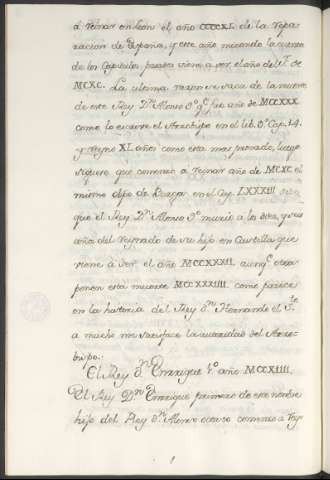 á reinar en Leon el año CCCCXL. de la repa-
racion de España, y este año mirando la cuenta
de los Capitulos pasados viene á ser el año del S.r de
MCXC. La ultima razon se saca de la muerte
de este Rey D.n Alonso 9.º q.e fue año de MCCXXX
como lo escrive el Arzobispo en el lib. 9.º Cap. 14.
y reyno XL años como esta mas provado, luego
siguese que comenzo a reynar año de MCXC el
mismo obpo de en el Cap. LXXXIII
que el Rey D.n Alonso 9.º murio a los diez, y seis
años del Reynado de su hijo en Castilla que
viene á ser el año MCCXXXII, aunq.e otros
ponen esta muerte MCCXXXIIII. como parece
en la historia del Rey D.n Hernando el S.to
a mucho me satisface la autoridad del Arzo-
bispo.
El Rey D.n Enrrique 1.º año MCCXIIII.
El Rey D.n Enrrique primero de este nombre
hijo del Rey D.n Alonso octavo comenzo a rey-